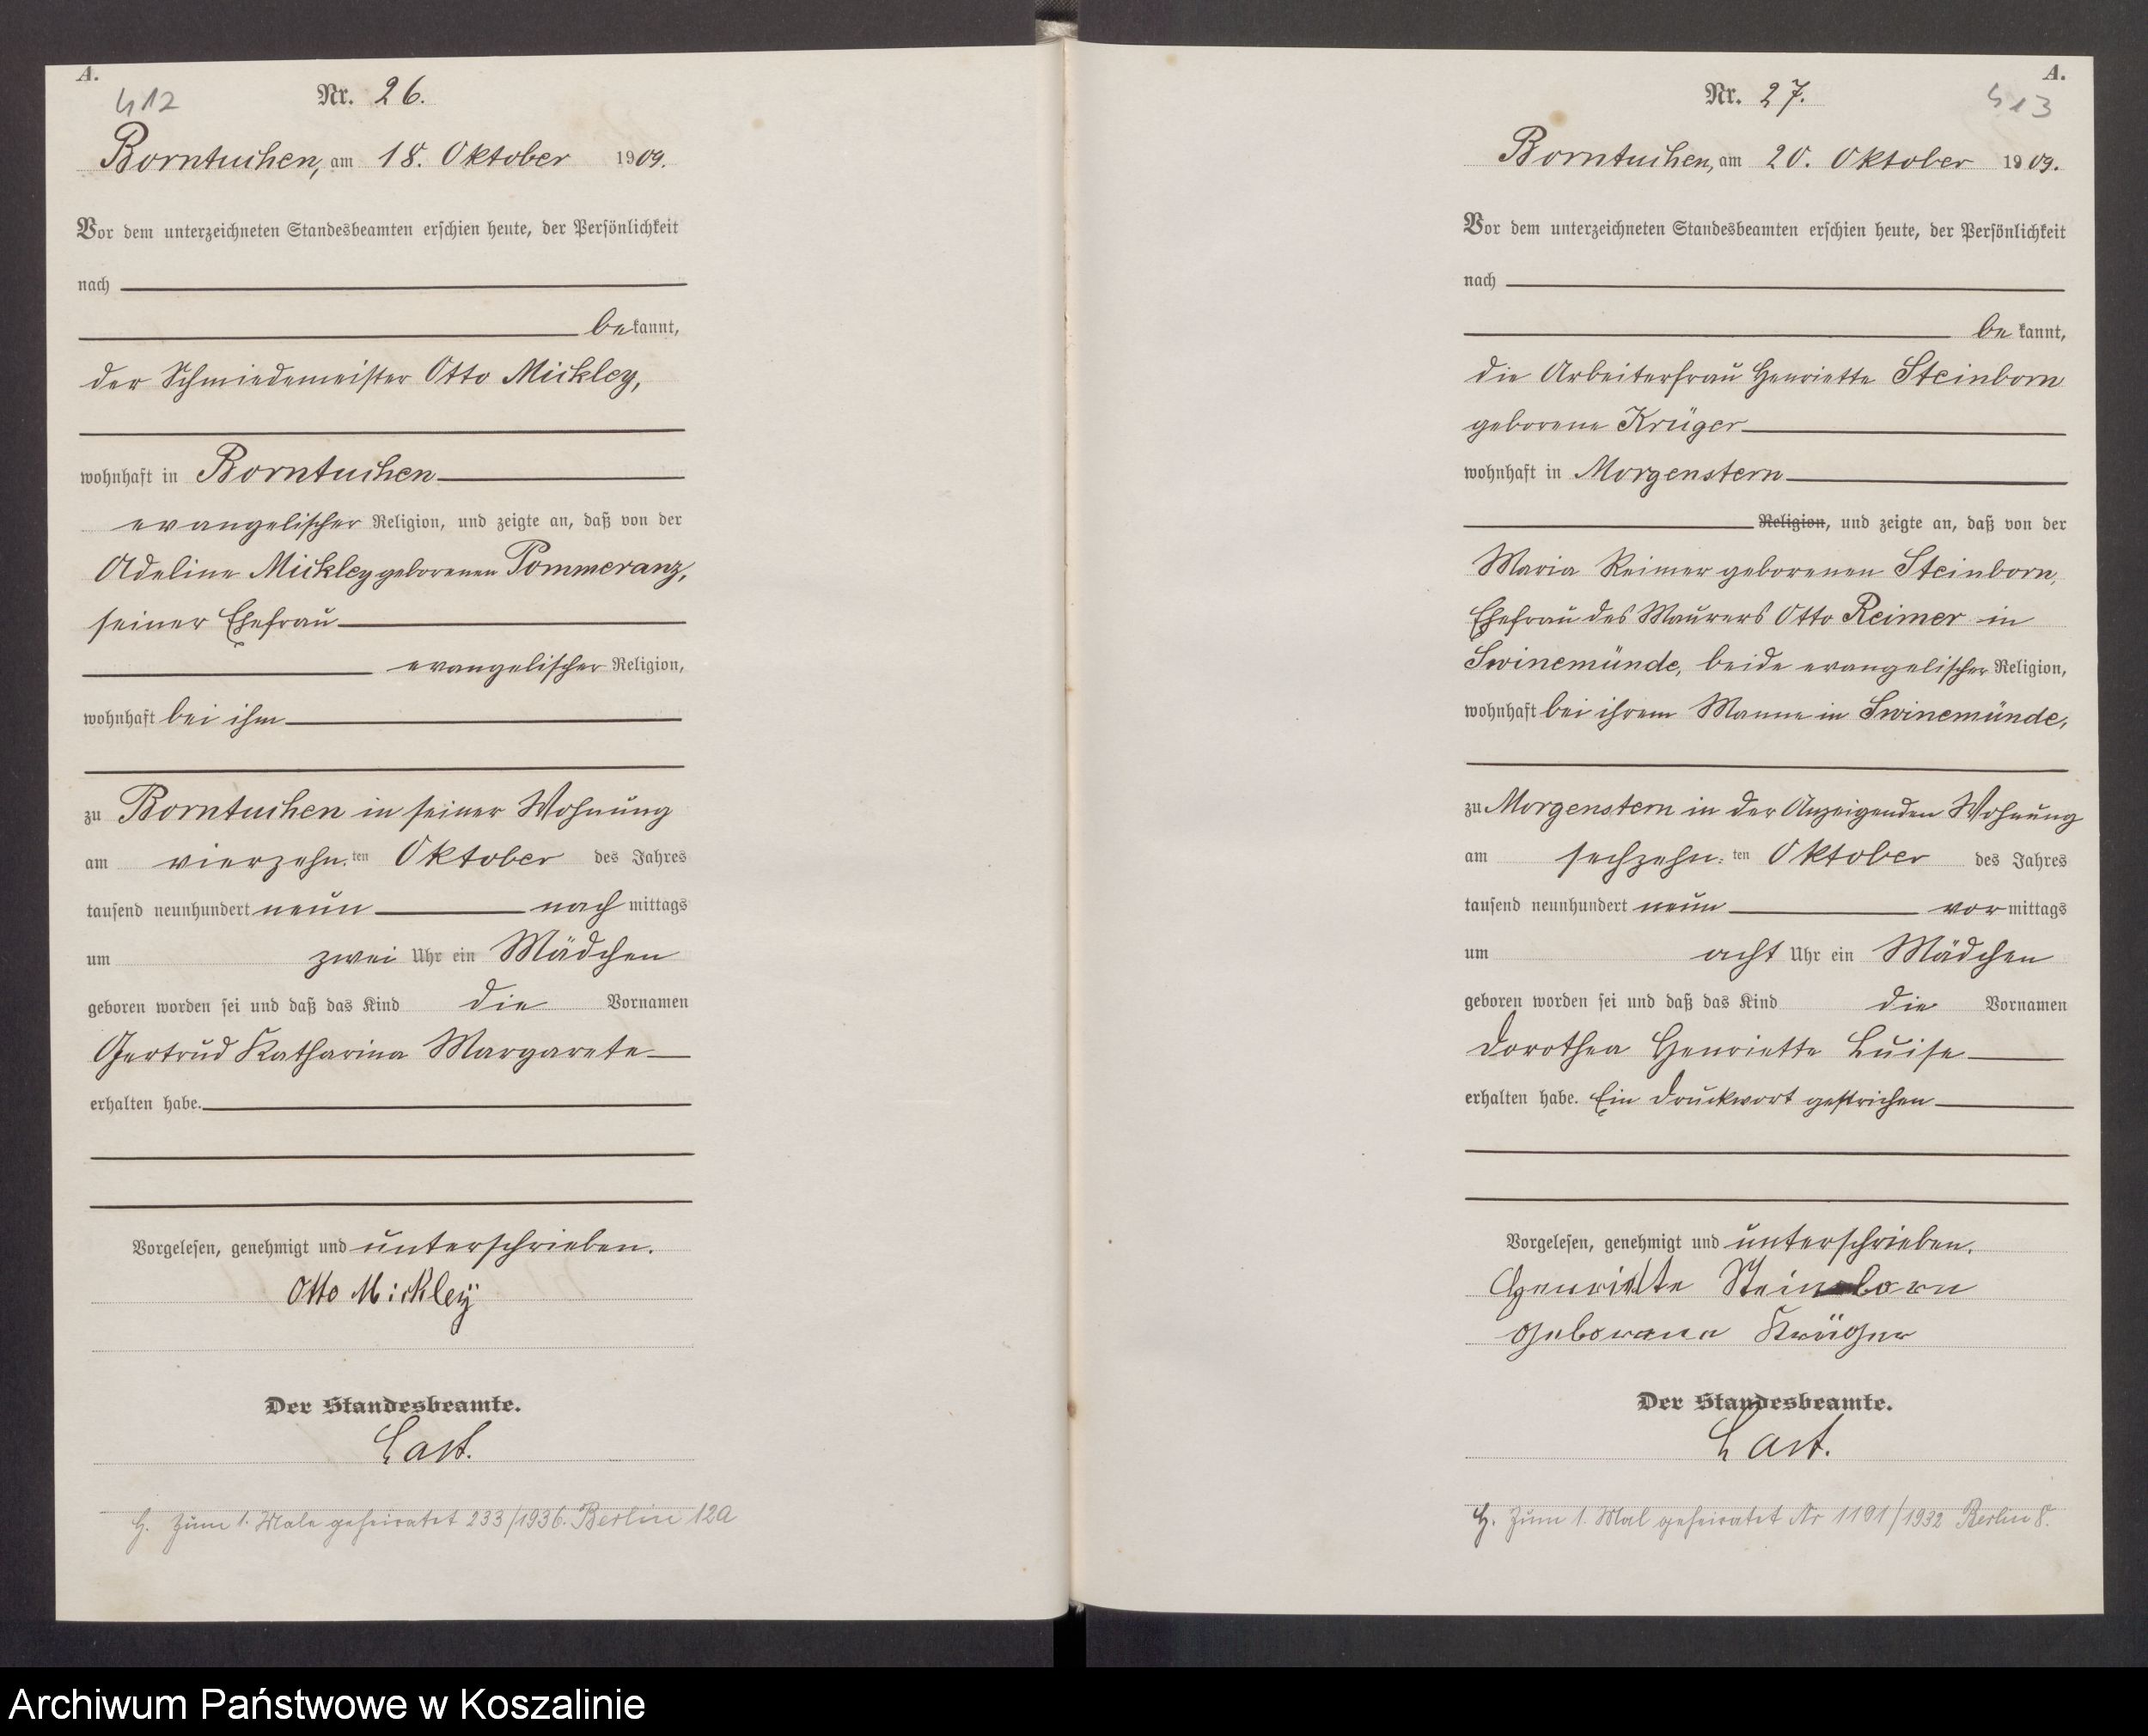 A.
412
Nr. 26.
Borntuchen, am 18. Oktober 1909.
Vor dem unterzeichneten Standesbeamten erschien heute, der Persönlichkeit
nach
bekannt,
der Schmiedemeister Otto Mickley,
wohnhaft in Borntuchen
evangelischer Religion, und zeigte an, daß von der
Adeline Mickley geborenen Pommeranz,
seiner Ehefrau
evangelischer Religion,
wohnhaft bei ihm
zu Borntuchen in seiner Wohnung
am vierzehn.ten Oktober des Jahres
tausend neunhundert neun nachmittags
um zwei Uhr ein Mädchen
geboren worden sei und daß das Kind die Vornamen
Gertrud Katharina Margarete
erhalten habe.
Vorgelesen, genehmigt und unterschrieben.
Otto Mickley
Der Standesbeamte.
Last.
H. Zum 1. Male geheiratet 233/1936. Berlin 12a
A.
413
Nr. 27.
Borntuchen, am 20. Oktober 1909.
Vor dem unterzeichneten Standesbeamten erschien heute, der Persönlichkeit
nach
bekannt,
die Arbeiterfrau Henriette Steinborn
geborene Krüger
wohnhaft in Morgenstern
Religion, und zeigte an, daß von der
Maria Reimer geborenen Steinborn,
Ehefrau des Maurers Otto Reimer in
Swinemünde, beide evangelischer Religion,
wohnhaft bei ihrem Manne in Swinemünde,
zu Morgenstern in der Anzeigenden Wohnung
am sechzehn.ten Oktober des Jahres
tausend neunhundert neun vormittags
um acht Uhr ein Mädchen
geboren worden sei und daß das Kind die Vornamen
Dorothea Henriette Luise
erhalten habe. Ein Druckwort gestrichen
Vorgelesen, genehmigt und unterschrieben.
Henriette Steinborn
geborene Krüger
Der Standesbeamte.
Last.
H. Zum 1. Mal geheiratet Nr 1191/1932 Berlin 8.
Archiwum Państwowe w Koszalinie